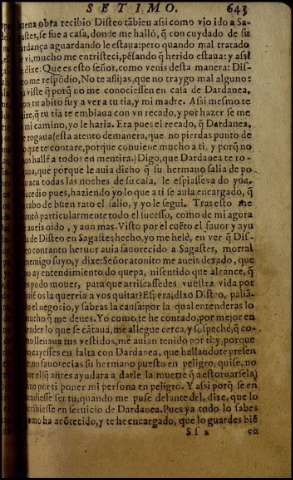 SETIMO. 643
obra recibio Disteo tābien assi como vio ido a Sa-
gaster, se fue a casa, donde me halló, q̄ con cuydado de su
dança aguardando le estaua: pero quando mal tratado
vi, mucho me entristeci, pēsando q̄ herido estaua; y assi
dixe: Que es esto señor, como venis desta manera: Dis-
me respōdio, No te aflijas, que no traygo mal alguno:
viste q̄ porq̄ no me conociessen en casa de Dardanea,
tu abito fuy a ver a tu tia, y mi madre. Assi mesmo te
q̄ tu tia te embiaua con vn recado, y por hazer se me
mi camino, yo le haria. Era pues el recado, q̄ Dardanea,
rogaua estes atento de manera, que no pierdas punto de
que te contare, porque conuiene mucho a ti, y porq̄ no
hallé a todos en mentira.) Digo, que Dardanea te ro-
que porque le auia dicho q̄ su hermano salia de po-
aca todas las noches de su casa, le espiasses do yua,
pues, haziendo yo lo que a ti se auia encargado, q̄
cabo de buen rato el salio, y yo le segui. Tras esto me
particularmente todo el sucesso, como de mi agora
auris oido, y aun mas. Visto por el cuēto el fauor y ayu
de Disteo en Sagaster hecho, yo me helé, en ver q̄ Dis-
contanto hernos auia fauorecido a Sagaster, mortal
enemigo suyo, y dixe: Señor atonito me aueis dexado, que
ay entendimiento do quepa, ni sentido que alcance, q̄
pudo mouer, para que arriscassedes vuestra vida por
os la querria a vos quitar? Espera, dixo Disteo, passa-
el negocio, y sabras la causa; por la qual entenderas lo
q̄ me deues. Yo como te he contado, por mejor en
lo que se cātaua, me allegue cerca, y sospechē, q̄ co-
tus vestidos, me auian tenido por ti: y porque
cayesses en falta con Dardanea, que hallandote presen
no fauorecias su hermano puesto en peligro, quise, no
antes ayudar a darle la muerte q̄ a estoruarsela,
poner mi persona en peligro. Y assi porq̄ se en
ser tu, quando me puse delante del, dixe, que lo
en seruicio de Dardanea. Pues ya todo lo sabes
ha acōtecido, y te he encargado, que lo guardes biē
Ss 2 en